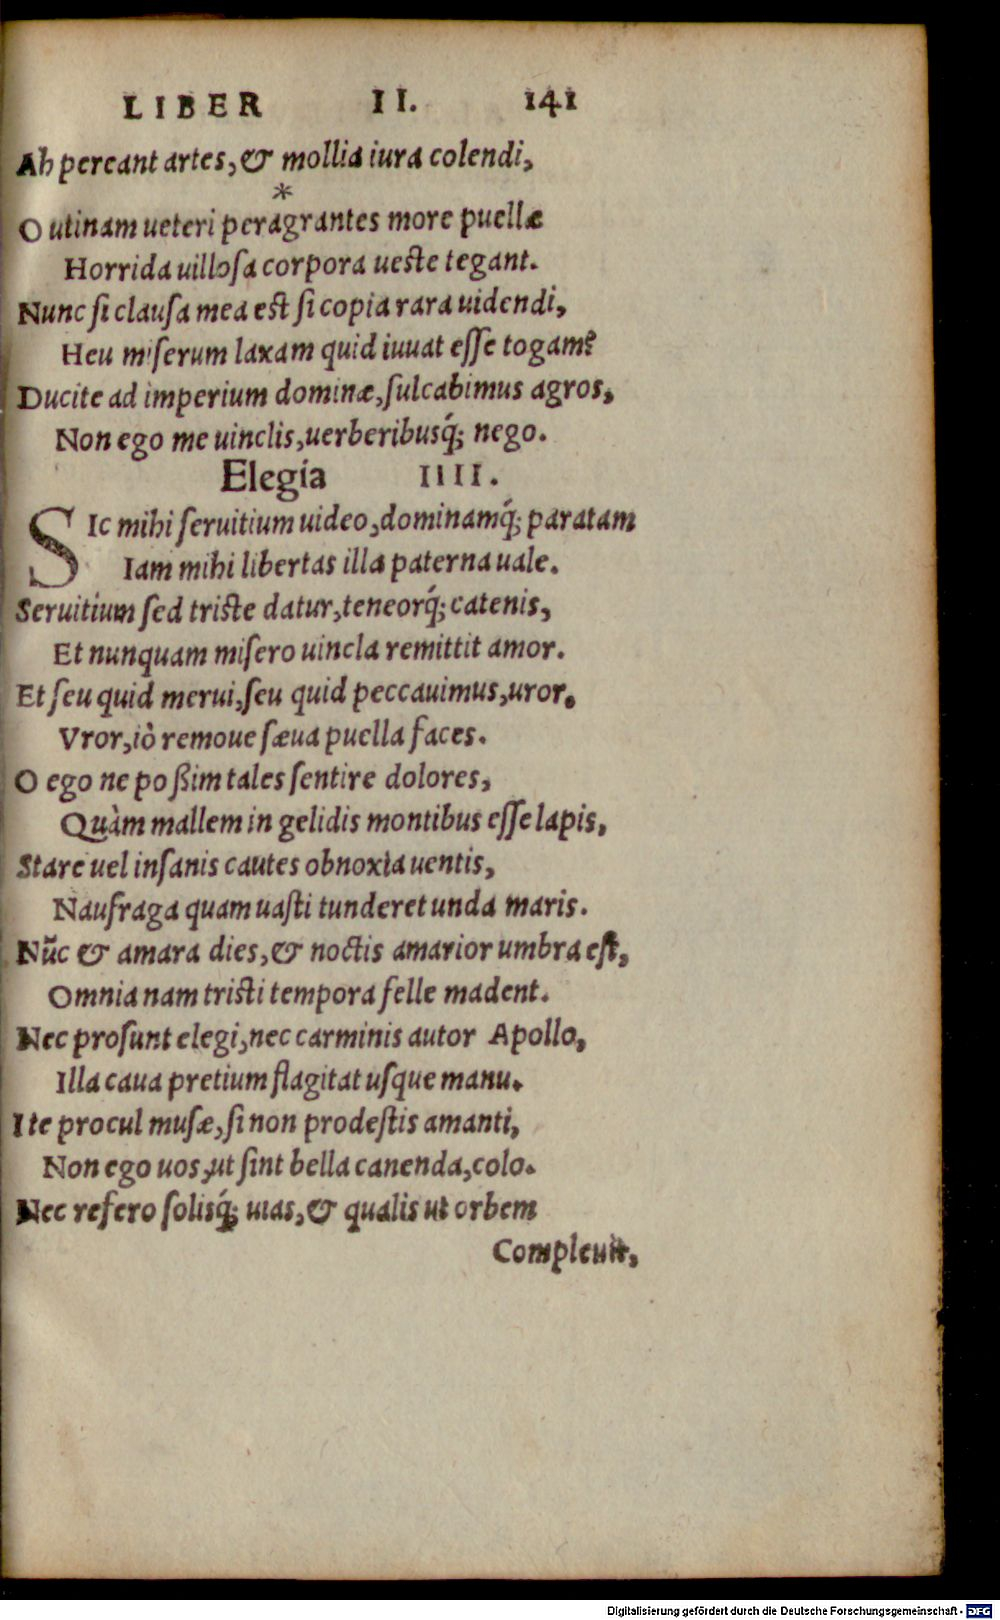 LIBER II. 141
Ah pereant artes, & mollia iura colendi,
*
O utinam ueteri peragrantes more puellæ
Horrida uillosa corpora ueste tegant.
Nunc si clausa mea est si copia rara uidendi,
Heu miserum laxam quid iuuat esse togam?
Ducite ad imperium dominæ, sulcabimus agros,
Non ego me uinclis, uerberibusq́; nego.
Elegia IIII.
SIc mihi seruitium uideo, dominamq́; paratam
Iam mihi libertas illa paterna uale.
Seruitium sed triste datur, teneorq́; catenis,
Et nunquam misero uincla remittit amor.
Et seu quid merui, seu quid peccauimus, uror,
Vror, iò remoue sæua puella faces.
O ego ne poßim tales sentire dolores,
Quàm mallem in gelidis montibus esse lapis,
Stare uel insanis cautes obnoxia uentis,
Naufraga quam uasti tunderet unda maris.
Nūc & amara dies, & noctis amarior umbra est,
Omnia nam tristi tempora felle madent.
Nec prosunt elegi, nec carminis autor Apollo,
Illa caua pretium flagitat usque manu.
Ite procul musæ, si non prodestis amanti,
Non ego uos, ut sint bella canenda, colo.
Nec refero solisq́; uias, & qualis ut orbem
Compleuit,
Digitalisierung gefördert durch die Deutsche Forschungsgemeinschaft - DFG